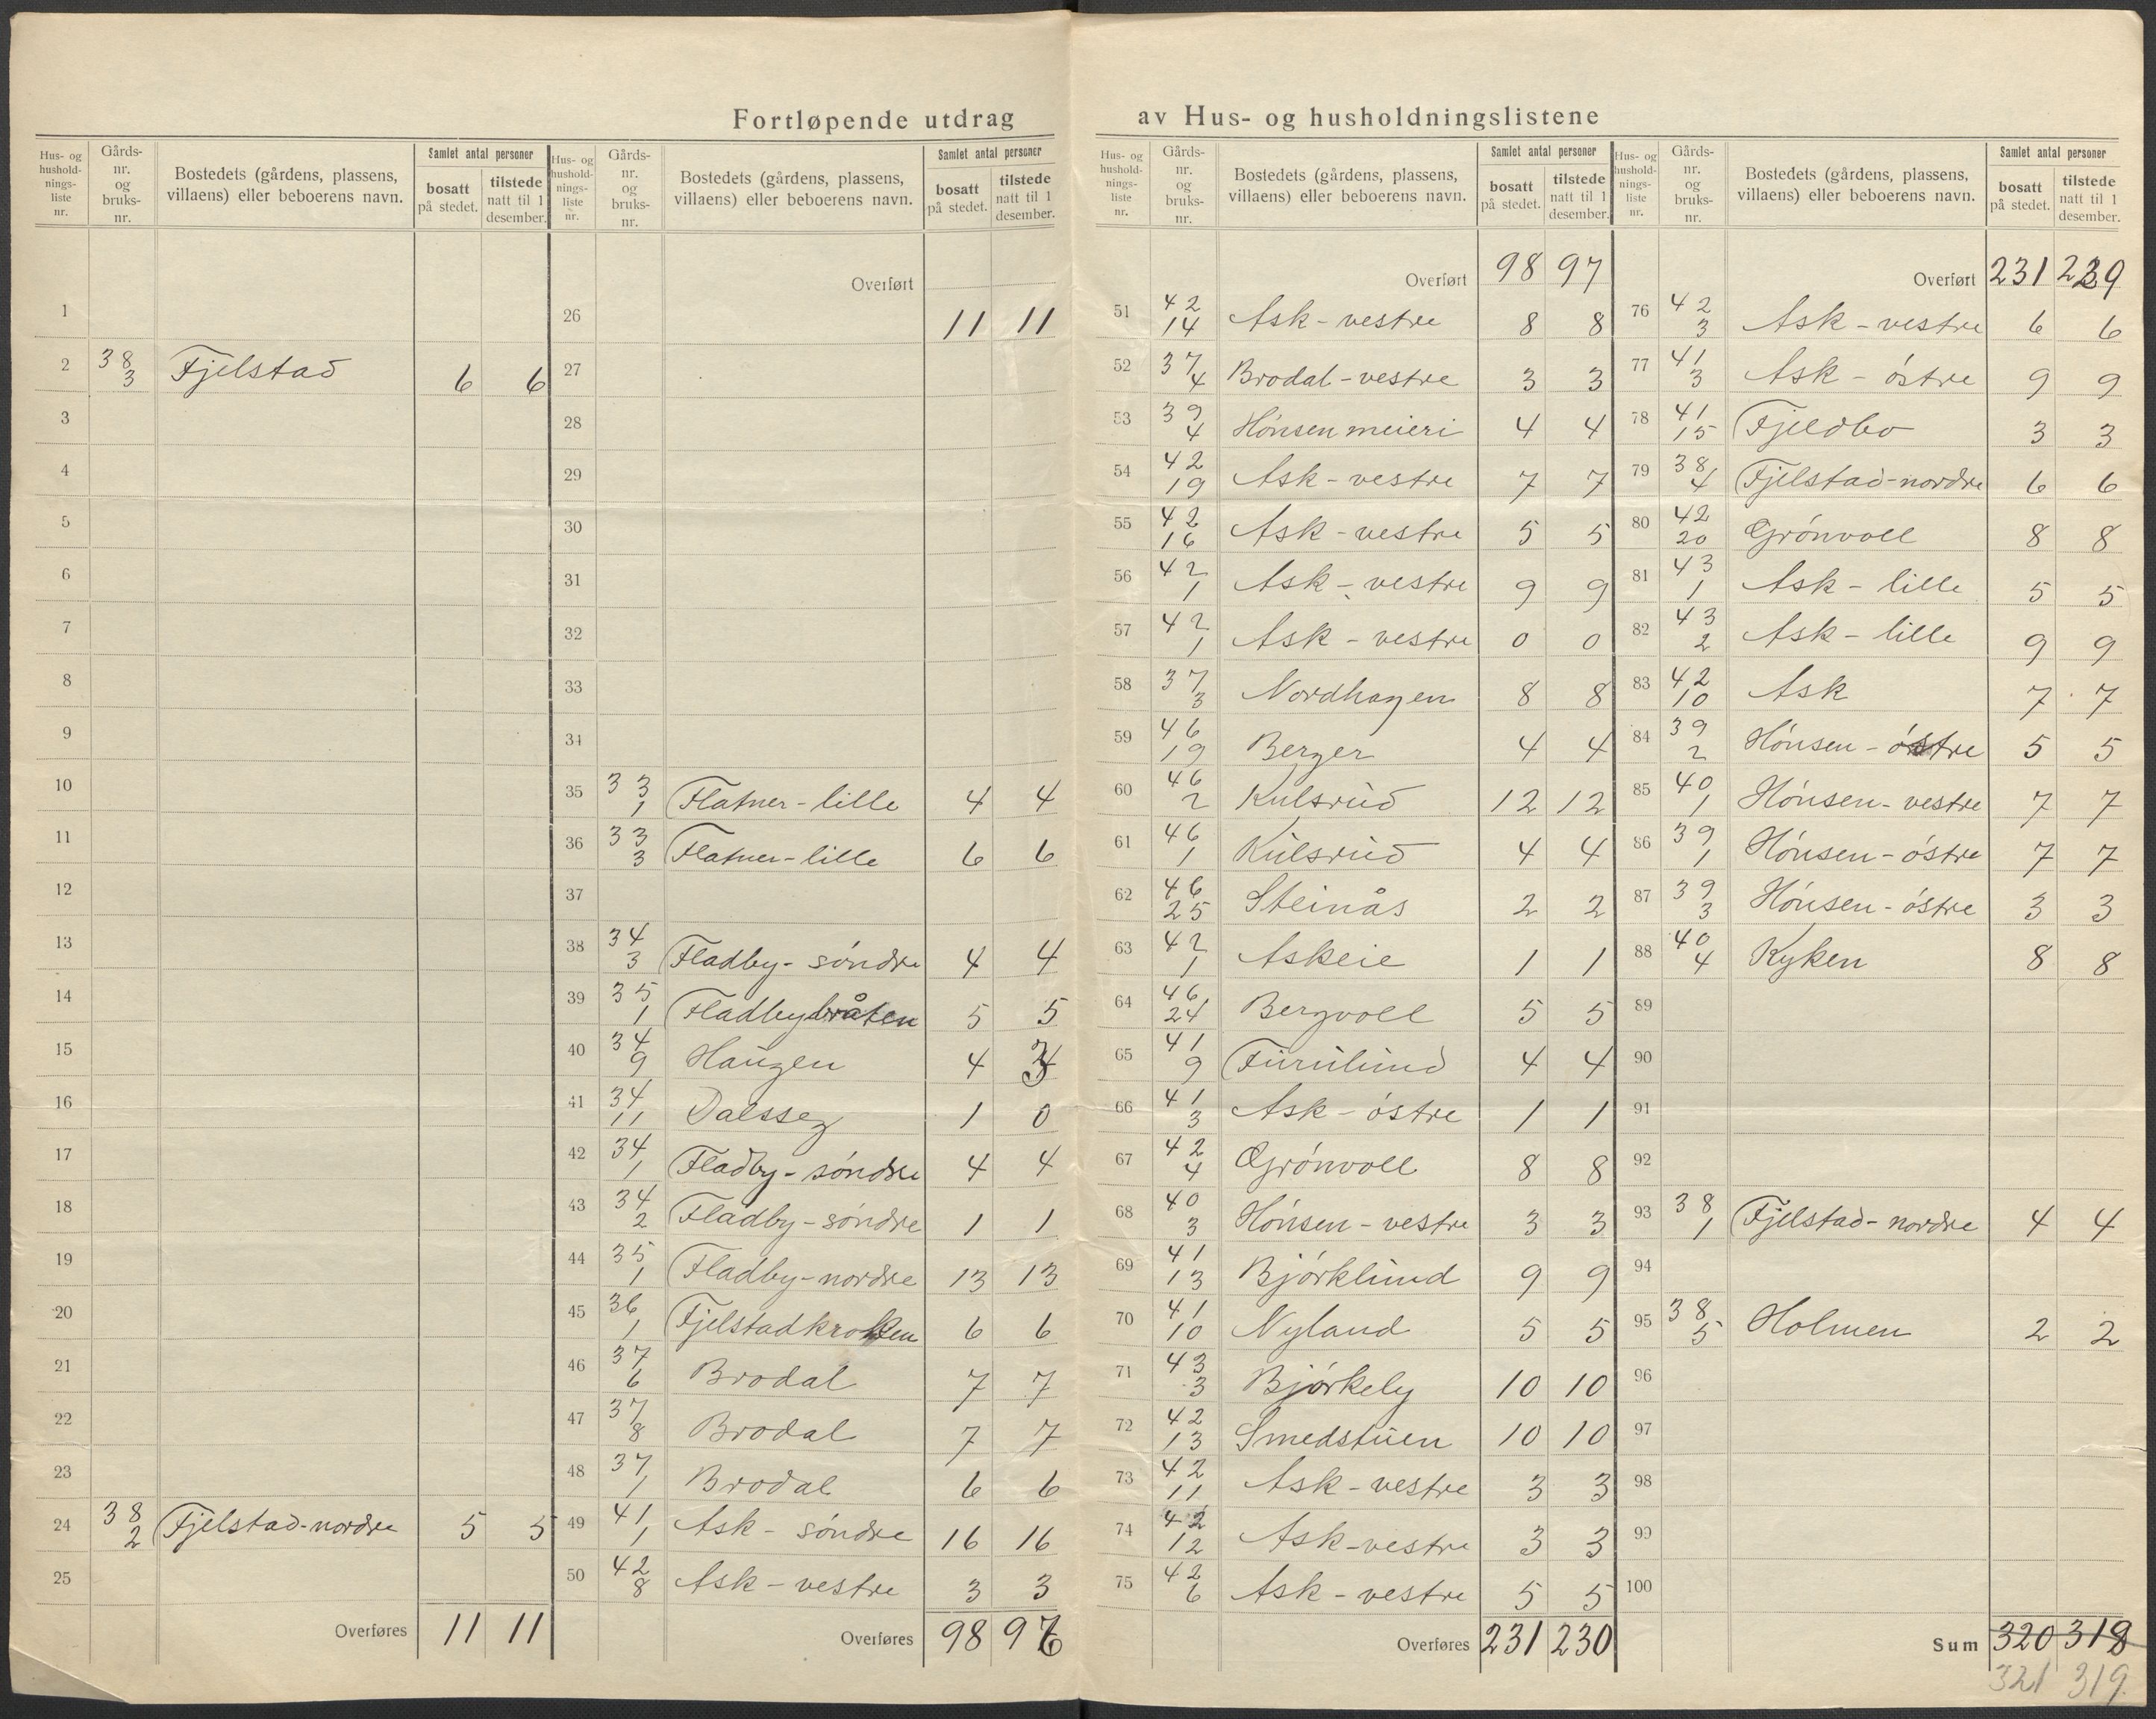 Fortløpende utdrag av Hus- og husholdningslistene
Hus- og hushold-nings-liste nr. Gårds-nr. og bruks-nr. Bostedets (gårdens, plassens, villaens) eller beboerens navn. Samlet antal personer bosatt på stedet. tilstede natt til 1 desember.
1
2 38 3 Fjelstad 6 6
3
4
5
6
7
8
9
10
11
12
13
14
15
16
17
18
19
20
21
22
23
24 38 2 Fjelstad-nordre 5 5
25
Overføres 11 11
Hus- og hushold-nings-liste nr. Gårds-nr. og bruks-nr. Bostedets (gårdens, plassens, villaens) eller beboerens navn. Samlet antal personer bosatt på stedet. tilstede natt til 1 desember.
Overført
26 11 11
27
28
29
30
31
32
33
34
35 33 1 Flatner-lille 4 4
36 33 3 Flatner-lille 6 6
37
38 34 3 Fladby-søndre 4 4
39 35 1 Fladbybråten 5 5
40 34 9 Haugen 4
41 34 11 Dalsseg 1 0
42 34 1 Fladby-søndre 4 4
43 34 2 Fladby-søndre 1 1
44 35 1 Fladby-nordre 13 13
45 36 1 Fjelstadkrokken 6 6
46 37 6 Brodal 7 7
47 37 8 Brodal 7 7
48 37 1 Brodal 6 6
49 41 1 Ask-søndre 16 16
50 42 8 Ask-vestre 3 3
Overføres 98
Hus- og hushold-nings-liste nr. Gårds-nr. og bruks-nr. Bostedets (gårdens, plassens, villaens) eller beboerens navn. Samlet antal personer bosatt på stedet. tilstede natt til 1 desember.
Overført 98 97
51 42 14 Ask-vestre 8 8
52 37 4 Brodal-vestre 3 3
53 39 4 Hønsen meieri 4 4
54 42 19 Ask-vestre 7 7
55 42 16 Ask-vestre 5 5
56 42 1 Ask-vestre 9 9
57 42 1 Ask-vestre 0 0
58 37 3 Nordhagen 8 8
59 46 19 Berger 4 4
60 46 2 Kulsrud 12 12
61 46 1 Kulsrud 4 4
62 46 25 Steinås 2 2
63 42 1 Askeie 1 1
64 46 24 Bergvoll 5 5
65 41 9 Furulund 4 4
66 41 3 Ask-østre 1 1
67 42 4 Grønvoll 8 8
68 40 3 Hønsen-vestre 3 3
69 41 13 Bjørklund 9 9
70 41 10 Nyland 5 5
71 43 3 Bjørkely 10 10
72 42 13 Smedstuen 10 10
73 42 11 Ask-vestre 3 3
74 42 12 Ask-vestre 3 3
75 42 6 Ask-vestre 5 5
Overføres 231 230
Hus- og hushold-nings-liste nr. Gårds-nr. og bruks-nr. Bostedets (gårdens, plassens, villaens) eller beboerens navn. Samlet antal personer bosatt på stedet. tilstede natt til 1 desember.
Overført 231 229
76 42 3 Ask-vestre 6 6
77 41 3 Ask-østre 9 9
78 41 15 Fjeldbo 3 3
79 38 4 Fjelstad-nordre 6 6
80 42 20 Grønvoll 8 8
81 43 1 Ask-lille 5 5
82 43 2 Ask-lille 9 9
83 42 10 Ask 7 7
84 39 2 Hønsen-østre 5 5
85 40 1 Hønsen-vestre 7 7
86 39 1 Hønsen-østre 7 7
87 39 3 Hønsen-østre 3 3
88 40 4 Kyken 8 8
89
90
91
92
93 38 1 Fjelstad-nordre 4 4
94
95 38 5 Holmen 2 2
96
97
98
99
100
Sum 320 318
321 319.